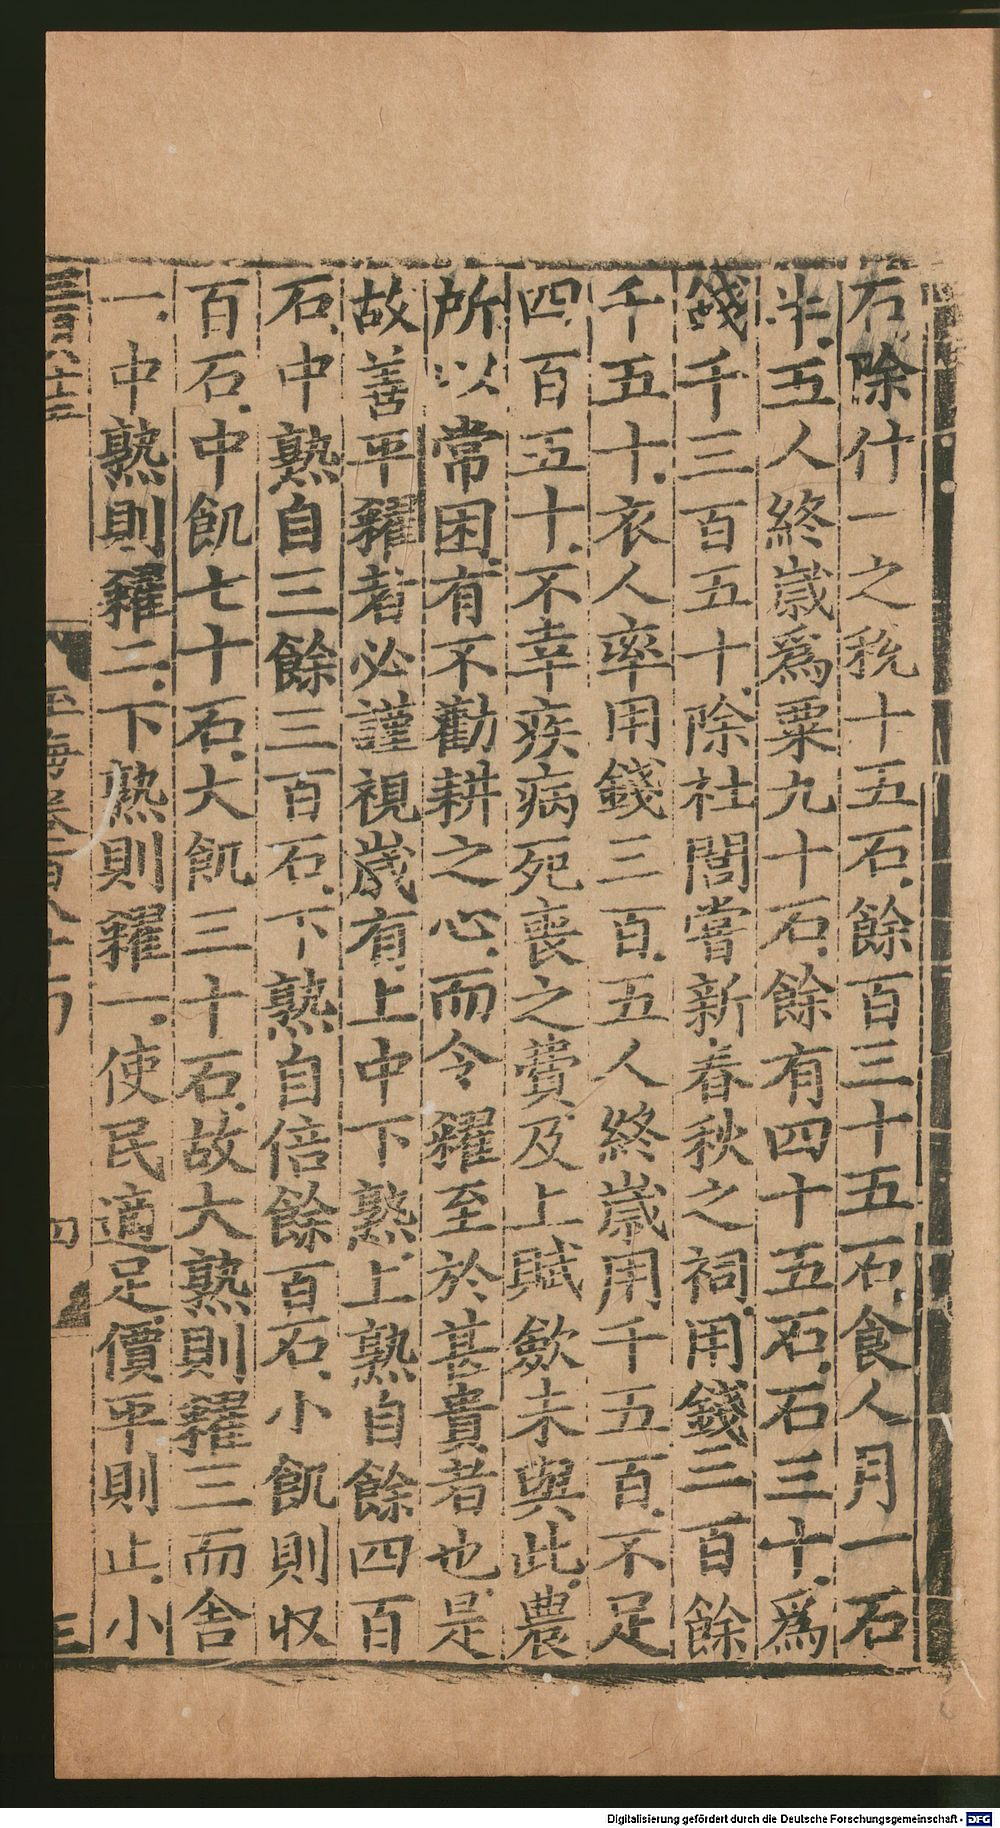 石除什一之税十五石餘百三十五石食人月一石
半五人終歲爲粟九十石餘有四十五石石三十爲
錢千三百五十除社閭嘗新春秋之祠用錢三百餘
千五十衣人率用錢三百五人終歲用千五百不足
四百五十不幸疾病死喪之費及上賦斂未與此農
所以常困有不勸耕之心而令糴至於甚貴者也是
故善平糴者必謹視歲有上中下熟上熟自餘四百
石中熟自三餘三百石下熟自倍餘百石小飢則收
百石中飢七十石大飢三十石故大熟則糴三而舍
一中熟則糴二下熟則糴一使民適足價平則止小
Digitalisierung gefördert durch die Deutsche Forschungsgemeinschaft - DFG